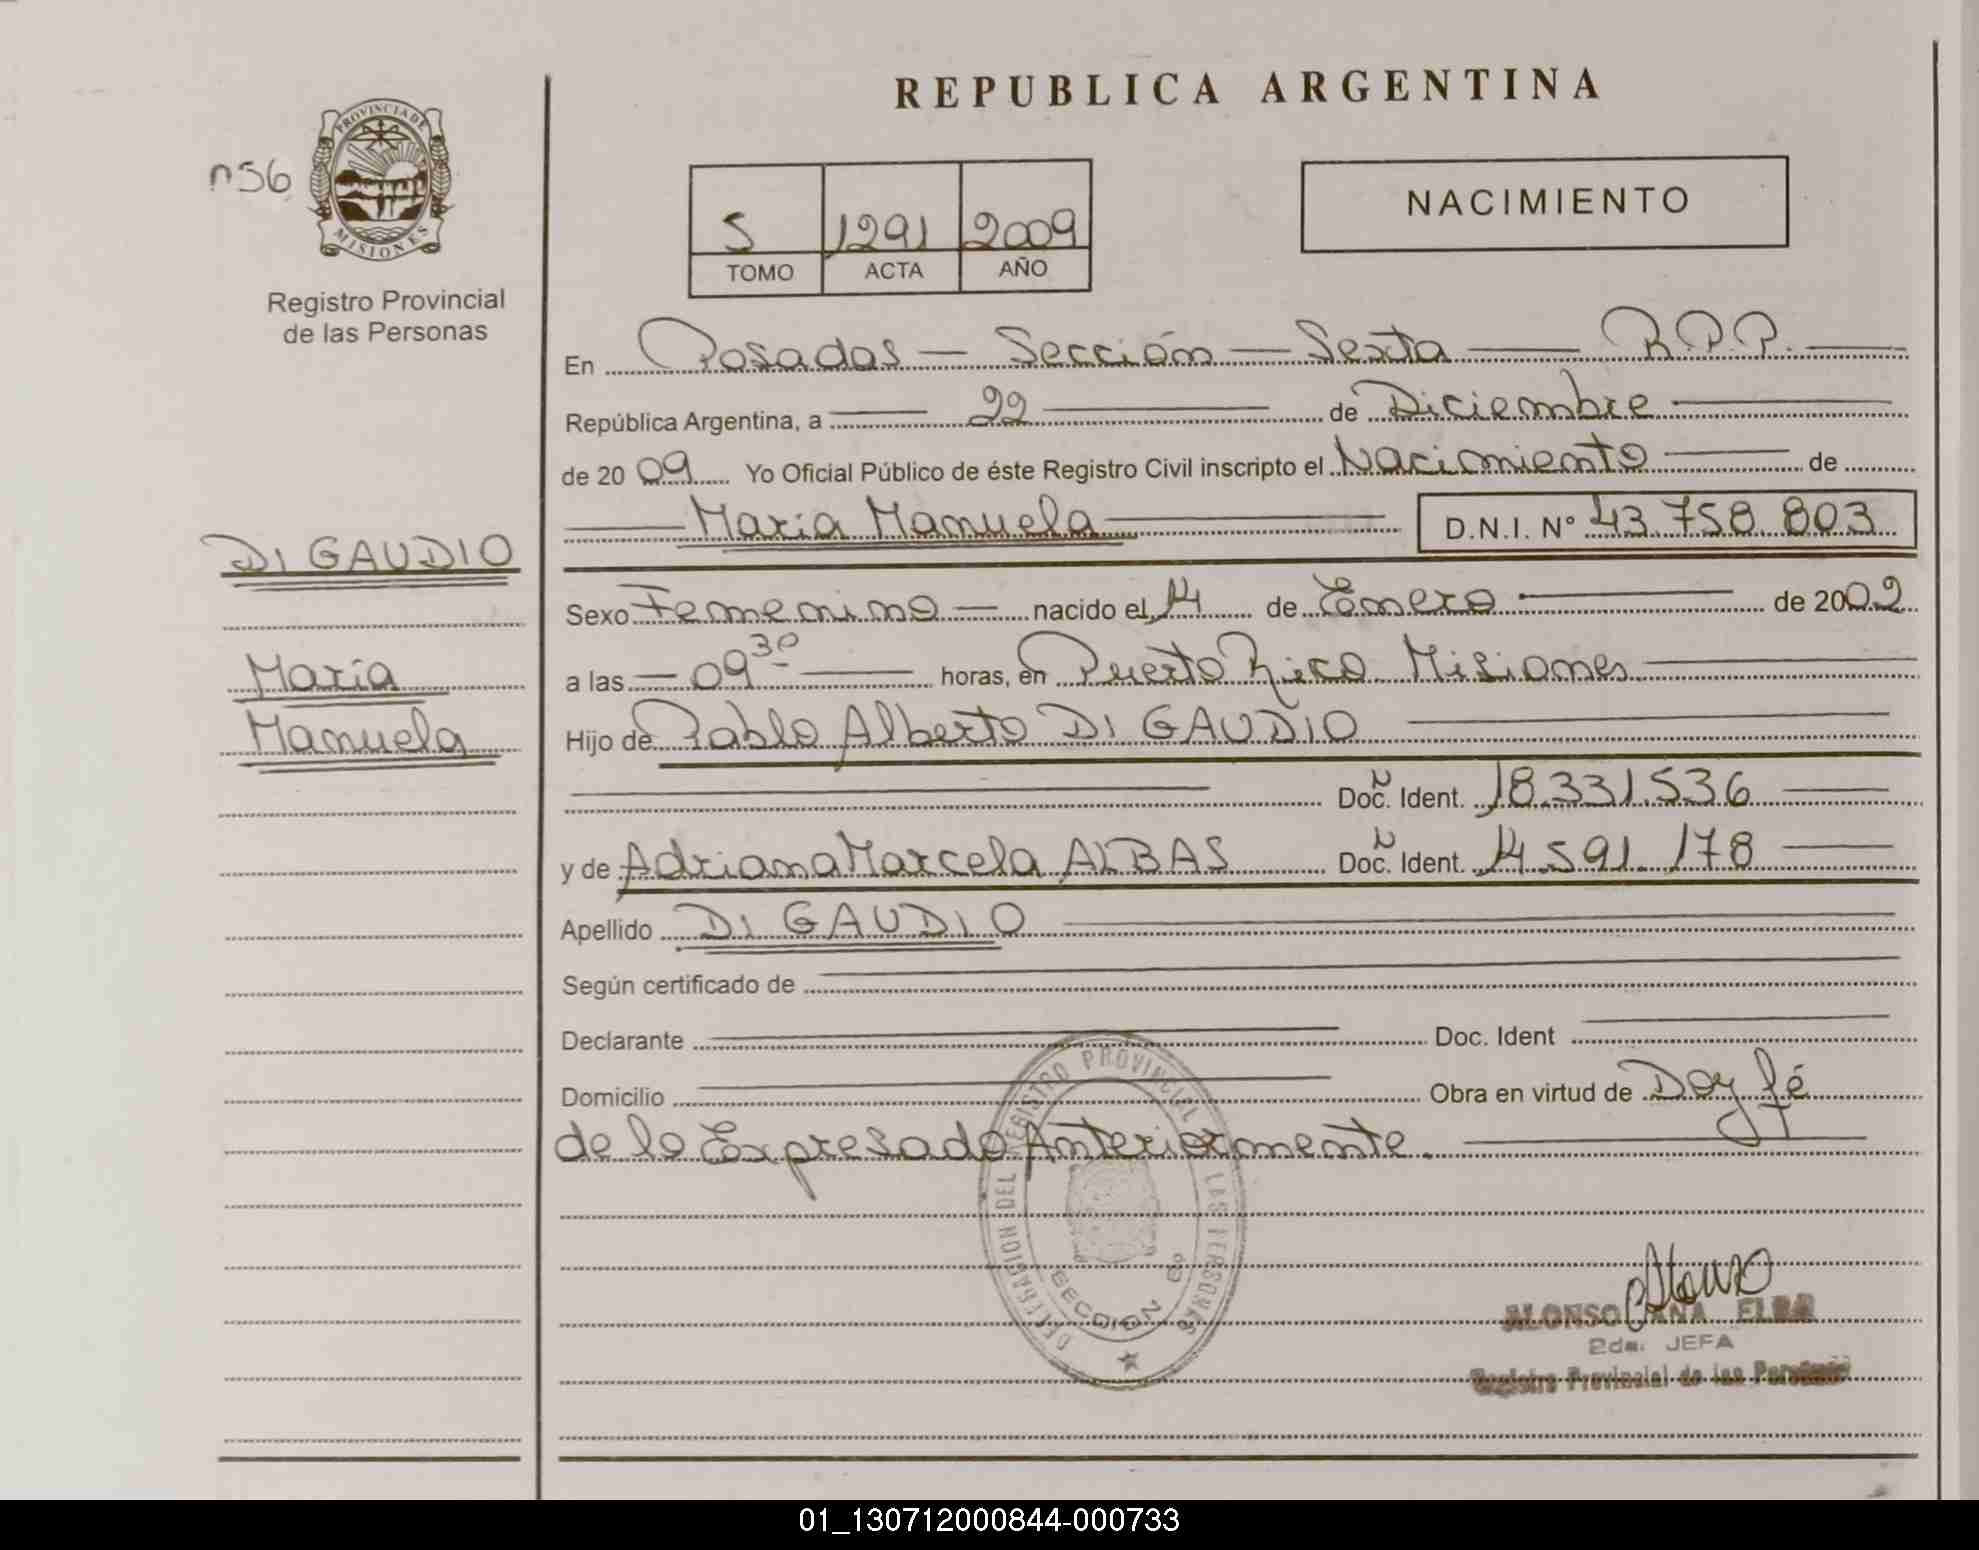 REPUBLICA ARGENTINA
n56
PROVINCIA DE
MISIONES
Registro Provincial
de las Personas
S 1291 2009
TOMO ACTA AÑO
NACIMIENTO
En Posadas — Sección — Sexta — R.P.P. —
República Argentina, a — 22 — de Diciembre —
de 20 09 Yo Oficial Público de éste Registro Civil inscripto el Nacimiento — de
— María Manuela — D.N.I. N° 43.758.803
DI GAUDIO
María
Manuela
Sexo Femenino — nacido el 14 de Enero — de 2002
a las — 09 30 — horas, en Puerto Rico Misiones —
Hijo de Pablo Alberto DI GAUDIO —
— Doc. Ident. 18.331.536 —
y de Adriana Marcela ALBAS Doc. Ident. 14.591.178 —
Apellido DI GAUDIO —
Según certificado de —
Declarante — Doc. Ident —
Domicilio — Obra en virtud de Doy fé
de lo Expresado Anteriormente. —
DELEGACION DEL REGISTRO PROVINCIAL LAS PERSONAS
SECCION 6ª
ALONSO ANA ELBA
2da. JEFA
Registro Provincial de las Personas
01_130712000844-000733